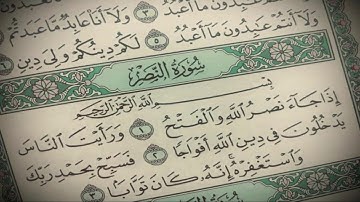 وَلَآ أَنتُمْ عَٰبِدُونَ مَآ أَعْبُدُ ٣ وَلَآ أَنَا۠ عَابِدٌ مَّا عَبَدتُّمْ
٤ وَلَآ أَنتُمْ عَٰبِدُونَ مَآ أَعْبُدُ ٥ لَكُمْ دِينُكُمْ وَلِيَ دِينِ
سُورَةُ النَّصْرِ
بِسْمِ اللَّهِ الرَّحْمَٰنِ الرَّحِيمِ
إِذَا جَآءَ نَصْرُ اللَّهِ وَالْفَتْحُ ١ وَرَأَيْتَ النَّاسَ
يَدْخُلُونَ فِي دِينِ اللَّهِ أَفْوَاجًا ٢ فَسَبِّحْ بِحَمْدِ رَبِّكَ
وَاسْتَغْفِرْهُ إِنَّهُۥ كَانَ تَوَّابًۢا ٣
سُورَةُ